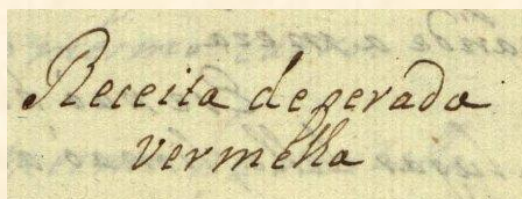 Receita de perada
vermelha